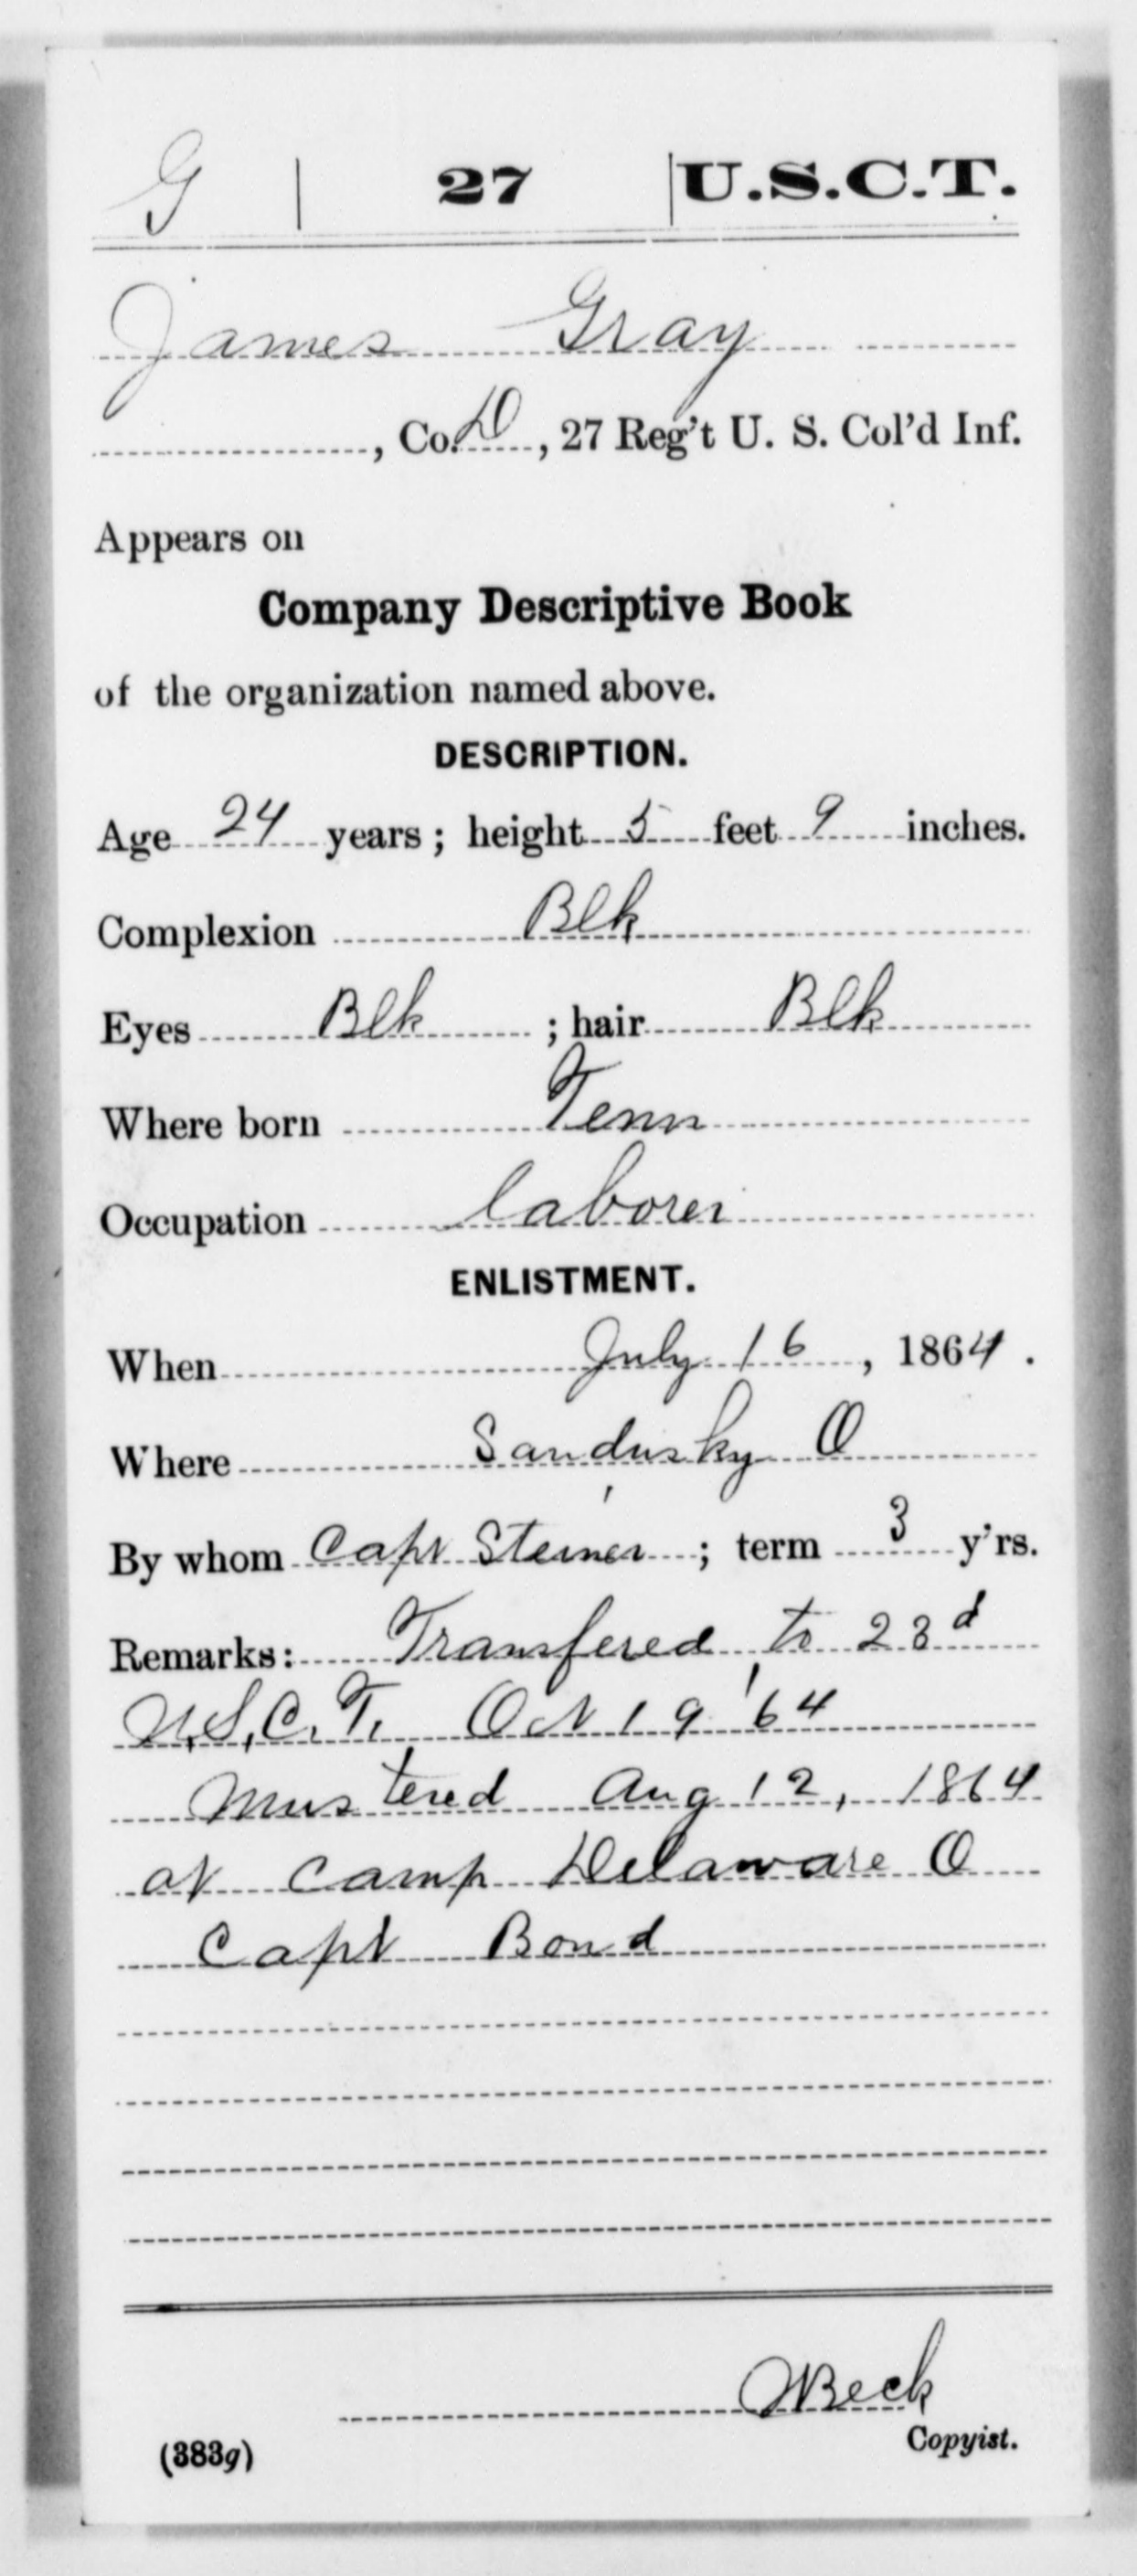 G | 27 | U.S.C.T.
James Gray
, Co. D, 27 Reg't U. S. Col'd Inf.
Appears on
Company Descriptive Book
of the organization named above.
DESCRIPTION.
Age 24 years; height 5 feet 9 inches.
Complexion Blk
Eyes Blk ; hair Blk
Where born Tenn
Occupation laborer
ENLISTMENT.
When July 16, 1864.
Where Sandusky O
By whom Capt Steiner; term 3 y'rs.
Remarks: Transfered to 23d
U.S.C.T. Oct 19 '64
Mustered Aug 12, 1864
at Camp Delaware O
Capt Bond
Beck
(383g)
Copyist.